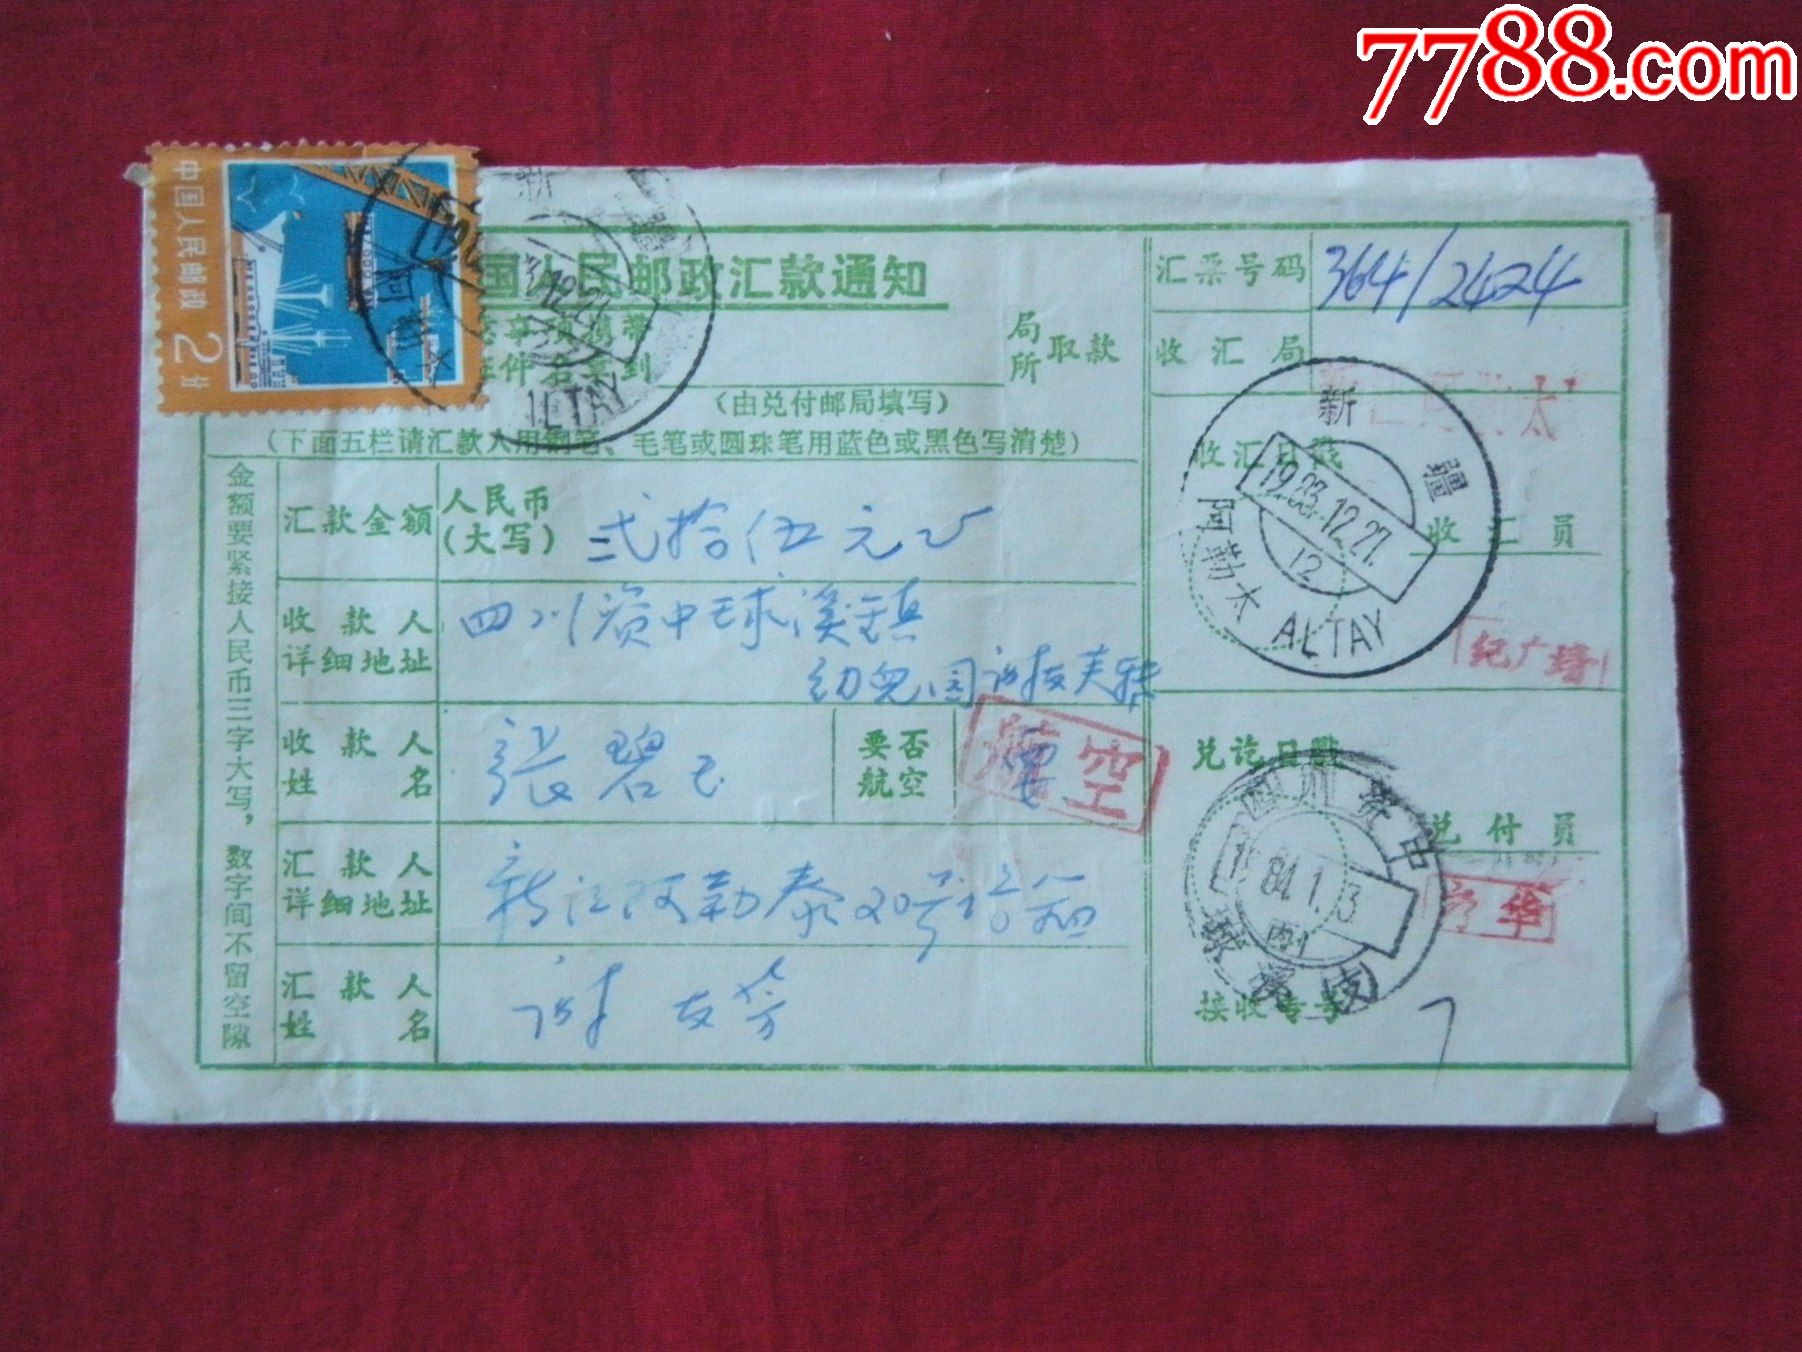 7788.com
中国人民邮政
2分
国人民邮政汇款通知
局
所 取款
(由兑付邮局填写)
(下面五栏请汇款人用钢笔、毛笔或圆珠笔用蓝色或黑色写清楚)
金额要紧接人民币三字大写，数字间不留空隙
汇款金额
人民币
(大写)
弍拾伍元
收款人
详细地址
四川资中球溪镇
幼儿园
收款人
姓名
張碧玉
要否
航空
要
航空
汇款人
详细地址
新江阿勒泰20号信箱
汇款人
姓名
谢友芳
汇票号码
364/2424
收汇局
收汇日戳
新疆
1983.12.27.
12
阿勒太 ALTAY
收汇员
纪广培
兑讫日戳
四川资中
1984.1.3
球溪
兑付员
华
接收专号
7
新疆
12.27
ALTAY